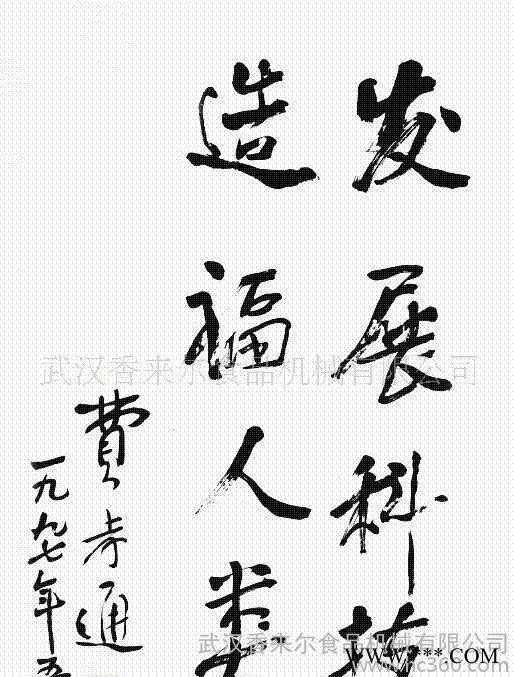 发展科技
造福人类
费孝通
一九九七年五
武汉香来尔食品机械有限公司
武汉香来尔食品机械有限公司
www.hc360.com
WWW.***.COM